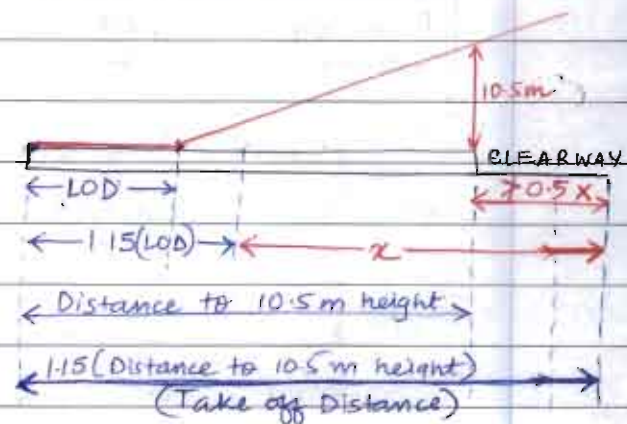 10.5m
CLEARWAY
LOD
>0.5 x
1.15(LOD)
x
Distance to 10.5 m height
1.15(Distance to 10.5 m height)
(Take off Distance)